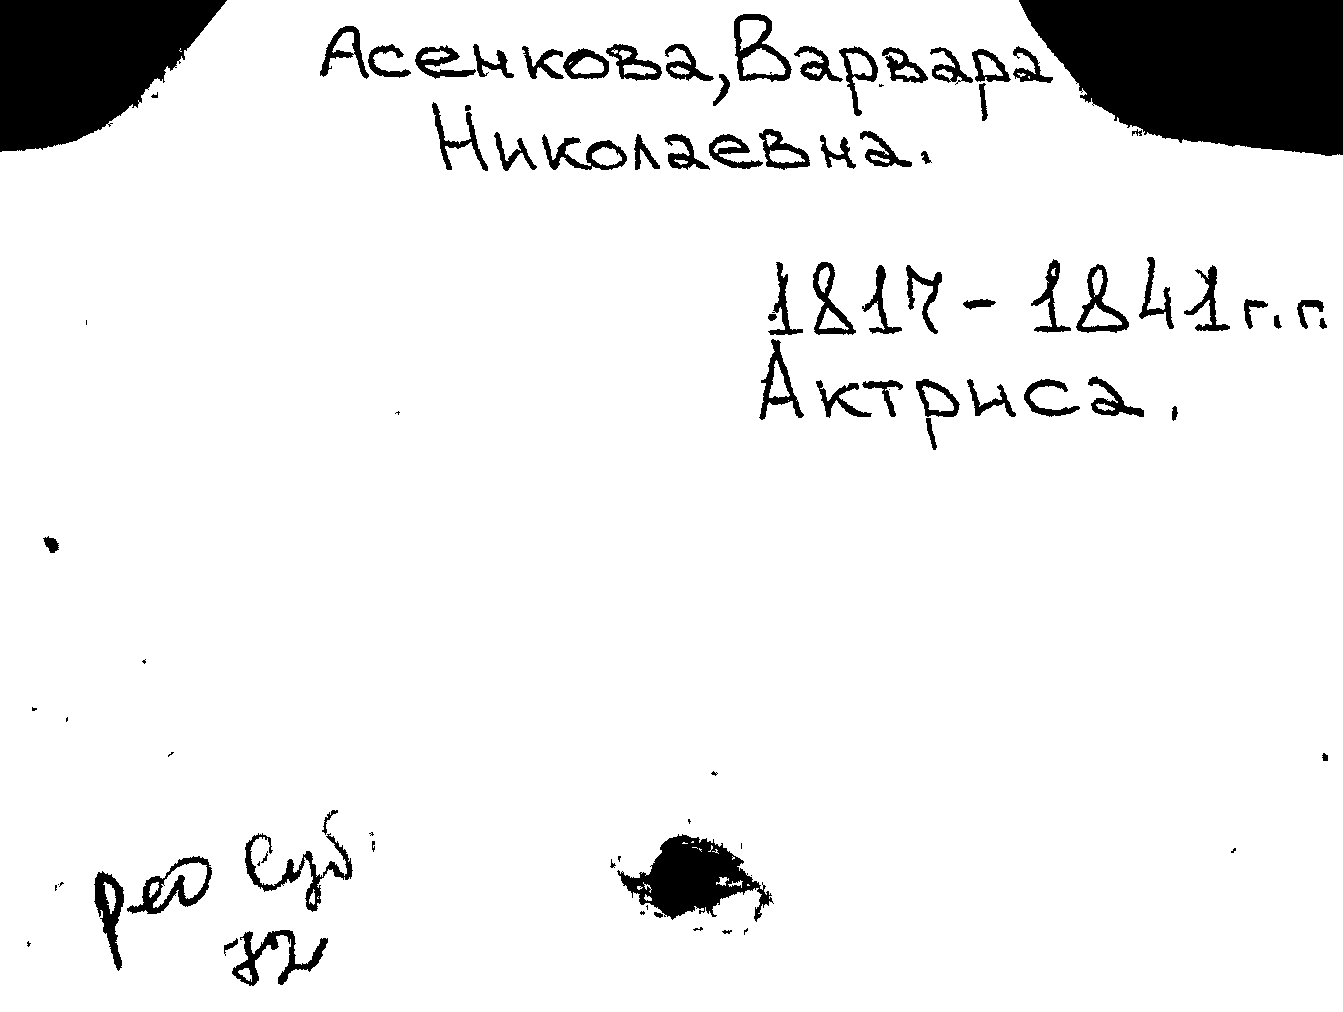 Асенкова, Варвара
Николаевна.
1817 - 1841 г.г.
Актриса.